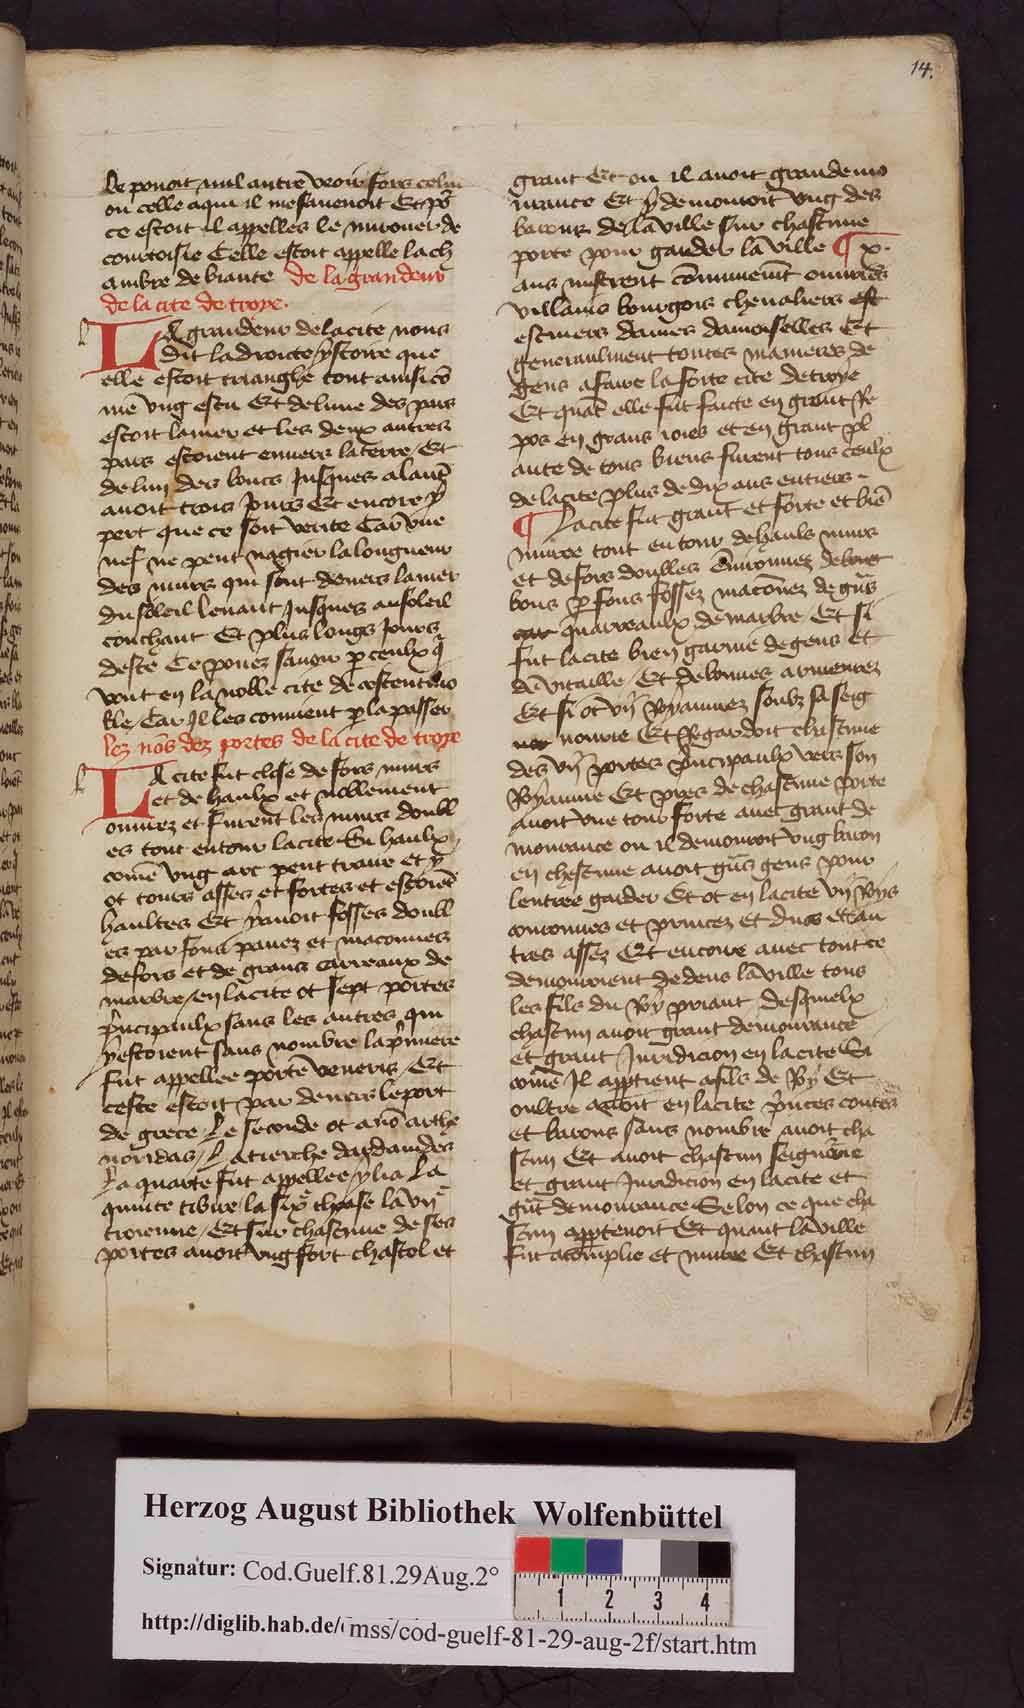 14.
le pouoit nul autre veoir fors celui
ou celle a qui il mesauenoit Et po᷒
ce estoit il appelles le mirouer de
courtoisie Celle estoit appelle la ch
ambre de biaute de la grandeur
de la cite de troye.
LA grandeur de la cite nous
dit la droicte ystoire que
elle estoit trianghe tout ainsi cō
me vng escu Et de lune des pars
estoit la mer et les deux autres
pars estoient enuers la terre / Et
de lun des boucs Jusques a laut᷒
auoit trois Jours Et encore y
pert que ce soit verite Car vne
nef ne peut nagier la longueur
des murs qui sont deuers la mer
du soleil leuant Jusques au soleil
couchant Et plus longs Jours
deste Ce pouez sauoir p ceulx q̄
vont en la noble cite de
ble / Car Il les conuient p la passer
lez nōs dez portes de la cite de troye
LA cite fut close de fors murs
et de haulx et noblement
ouurez et furent les murs doubl
es tout entour la cite Si haulx
come vng arc peut traire et y
ot tours asses et fortes et estoiēt
haultes Et y auoit fosses doubl
es par fons pauez et maconnes
de fors et de grans carreaux de
marbre / en la cite ot sept portes
p̄ncipaulx sans les autres qui
y estoient sans nombre la p̄miere
fut appellee porte veneris / Et
ceste estoit par deuers le port
de grece / Le seconde ot anō arthe
noridas / La tierche dardandes
La quarte fut appellee ylia La
quinte tibure la sixͤ thease la viiͤ
troienne / Et sur chascune de ses
portes auoit vng fort chastol et
grant Et ou il auoit grande mo
urance Et y demouroit vng des
barons de la ville sur chascune
porte pour garder la ville ¶ x.
ans mistrent cōmunemēt ouuriers
villains bourgois cheualiers
escuiers dames damoiselles Et
generaulment toutes manieres de
gens a faire la forte cite de troye
Et quāt elle fut faicte en grant Re
pos en grans ioies et en grant pl
ante de tous biens furent tous ceulx
de la cite plus de dix ans entiers .
¶ La cite fut grant et forte et biē
muree tout entour de haulx murs
et de fors doulles
bons p fons fossez maconez de gr̄s
quarreaulx de marbre Et si
fut la cite bien garnie de gens et
de vitaille / Et de bonnes armeurez
Et si ot vij Royaumez soubz sa seig
nourie Et Regardoit chascune
des vij portes p̄ncipaulx vers son
Royaume Et pres de chascune porte
auoit vne tour forte auec grant de
mourance ou il demouroit vng baron
en chescune auoit gr̄s gens pour
lentree garder Et ot en la cite vij Roys
couronnes et princez et ducs et au
tres assez Et encore auec tout ce
demouroient dedens la ville tous
les fils du Roy priant / desquelx
chascun auoit grant demourance
et grant Juridicion en la cite Si
come Il apptient a fils de Roy Et
oultre auoit en la cite p̄nces contes
et barons sans nombre auoit cha
scun Et auoit chascun seignourie
et grant Juridicion en la cite et
gr̄t demourance Selon ce que cha
scun appartenoit Et quant la ville
fut acomplie et muree Et chascun
Herzog August Bibliothek Wolfenbüttel
Signatur: Cod.Guelf.81.29Aug.2°
http://diglib.hab.de/mss/cod-guelf-81-29-aug-2f/start.htm
1 2 3 4